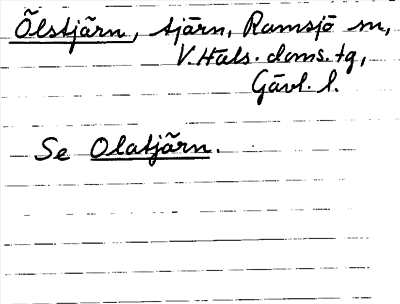 Ölstjärn, tjärn, Ramsjö sn,
V. Häls. doms. tg,
Gävl. l.
Se Olatjärn.